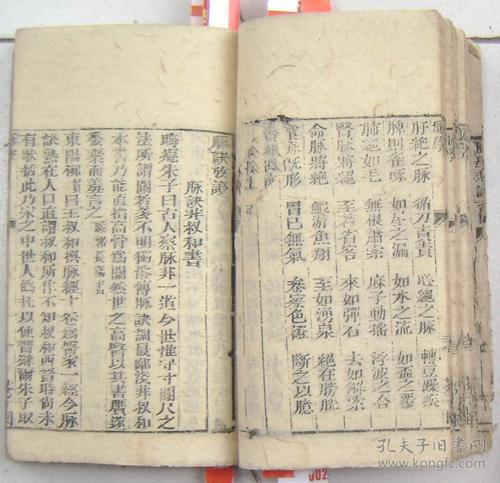 肝絕之脈 循刀責責 心絕之脈 轉豆躁疾
脾則雀啄 如屋之漏 如水之流 如盃之覆
肺絕如毛 無根蕭索 麻子動搖 浮波之合
腎脈將絕 至若省客 來如彈石 去如解索
命脈將絕 鰕游魚翔 至如湧泉 絕在膀胱
真脈既形 胃已無氣 參察色證 斷之以臆
脈訣攷證
脈訣非叔和書
晦庵朱子曰古人察脈非一道今世惟守寸關尺之
法所謂關者多不明獨俗傳脈訣詞最鄙淺非叔和
本書乃能直指高骨為關然世之高醫以其書贗遂
委棄而羞言之 跋郭長陽書
東陽柳貫曰王叔和撰脈經十卷為醫家一經今脈
訣熟在人口直謂叔和所作不知叔和西晉時尚未
有歌括此乃宋之中世人偽托以便習肄爾朱子取
孔夫子旧书网
www.kongfz.com